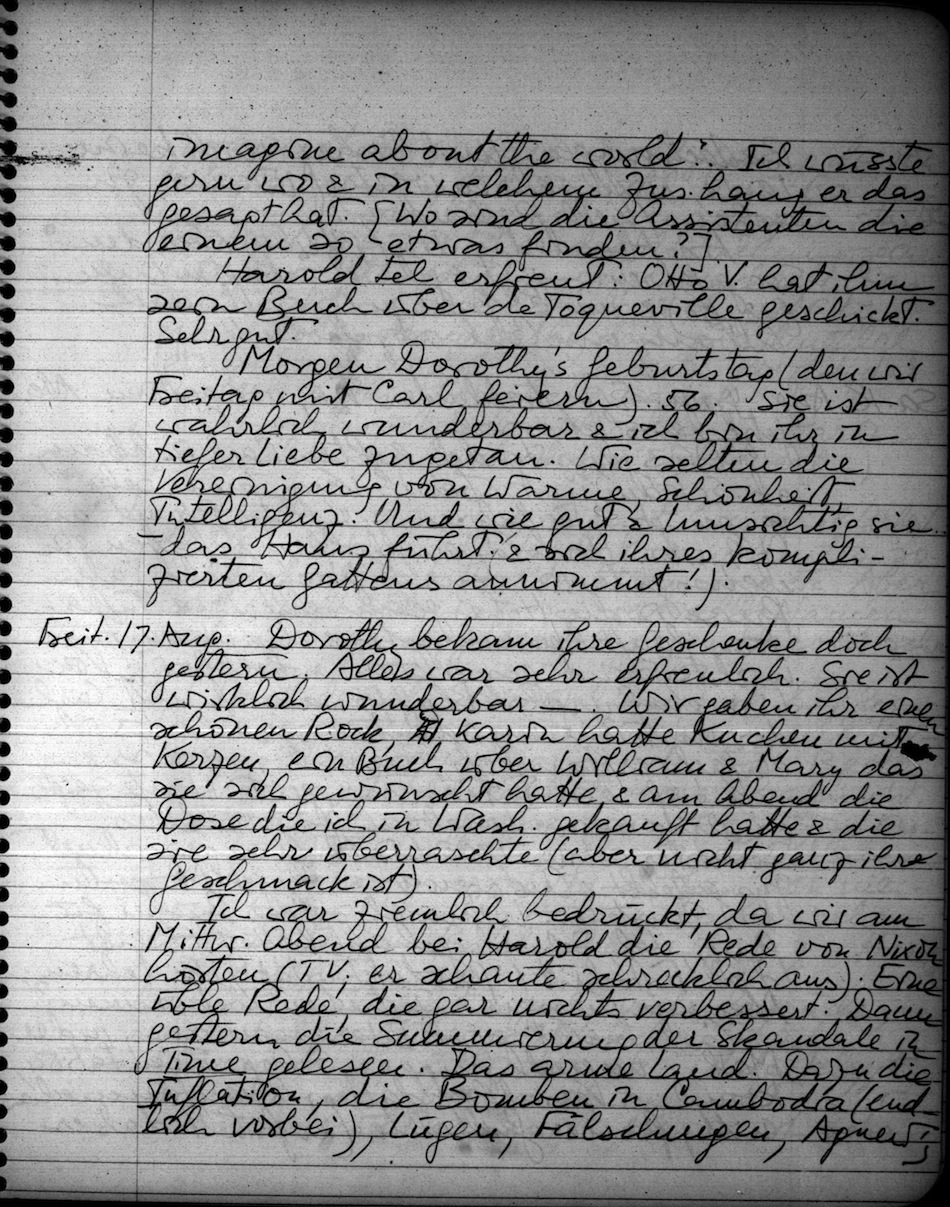 imagine about the world". Ich wüsste
gern wo & in welchem Zus.hang er das
gesagt hat. [Wo sind die Assistenten die
einem so etwas finden?]
Harold tel. erfreut: Otto V. hat ihm
sein Buch über de Toqueville geschickt.
Sehr gut.
Morgen Dorothy's Geburtstag (den wir
Freitag mit Carl feiern). 56. Sie ist
wahrlich wunderbar & ich bin ihr in
tiefer Liebe zugetan. Wie selten die
Vereinigung von Wärme, Schönheit,
Intelligenz. Und wie gut & umsichtig sie
das Haus führt (& sich ihres kompli-
zierten Gattens annimmt!).
Freit. 17. Aug. Dorothy bekam ihre Geschenke doch
gestern. Alles war sehr erfreulich. Sie ist
wirklich wunderbar —. Wir gaben ihr einen
schönen Rock, Karin hatte Kuchen mit
Kerzen, ein Buch über William & Mary das
sie sich gewünscht hatte, & am Abend die
Dose die ich in Wash. gekauft hatte & die
sie sehr überraschte (aber nicht ganz ihre
Geschmack ist).
Ich war ziemlich bedrückt, da wir am
Mittw. Abend bei Harold die Rede von Nixon
hörten (TV; er schaute schrecklich aus). Eine
üble Rede, die gar nichts verbessert. Dann
gestern die Summierung der Skandale in
Time gelesen. Das arme Land. Dazu die
Inflation, die Bomben in Cambodia (end-
lich vorbei), Lügen, Fälschungen, Agnew's